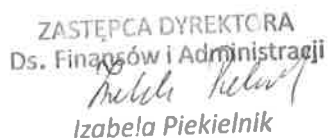 ZASTĘPCA DYREKTORA
Ds. Finansów i Administracji
Izabela Piekielnik